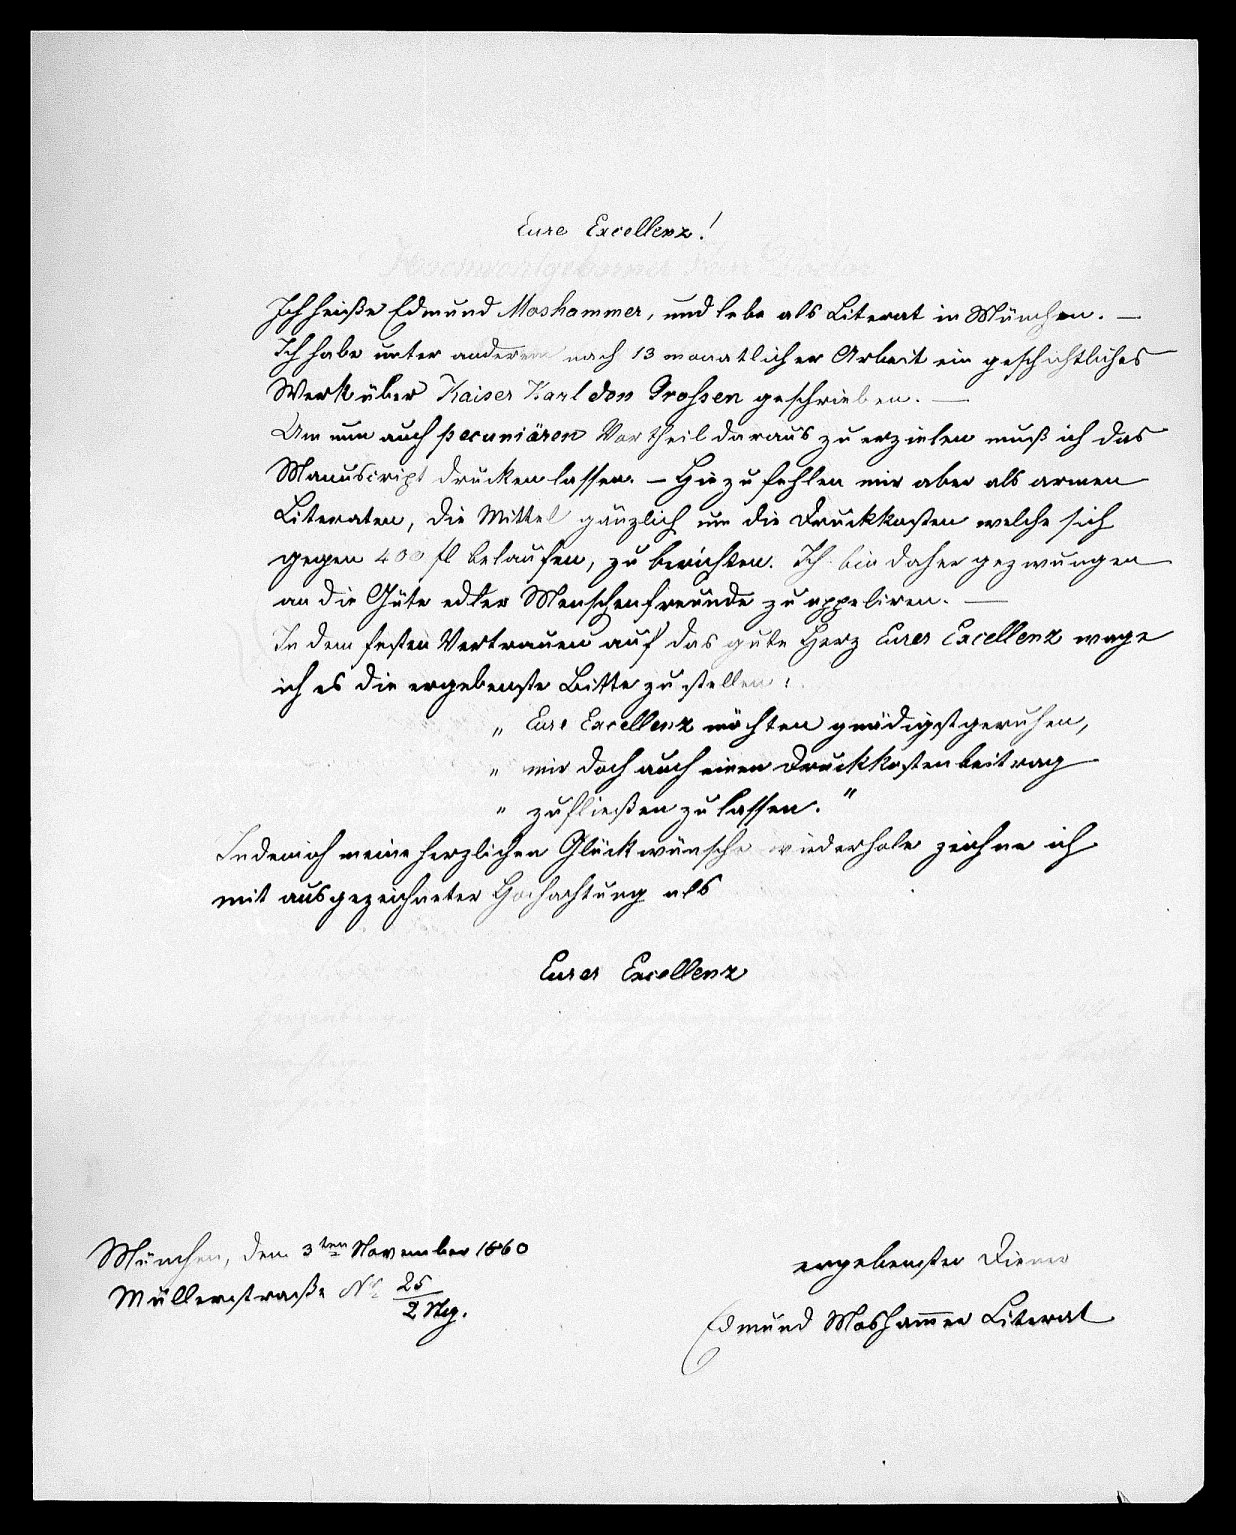 Eure Excellenz!
Ich heiße Edmund Moshammer, und lebe als Literat in München. —
Ich habe unter anderem nach 13 monatlicher Arbeit ein geschichtliches
Werk über Kaiser Karl den Grossen geschrieben. —
Um nun auch pecuniären Vortheil daraus zu erzielen muß ich das
Manuscript drucken lassen. — Hiezu fehlen mir aber als armen
Literaten, die Mittel gänzlich um die Druckkosten welche sich
gegen 400 fl belaufen, zu berichten. Ich bin daher gezwungen
an die Güte edler Menschenfreunde zu appeliren. —
In dem festen Vertrauen auf das gute Herz Eurer Excellenz wage
ich es die ergebenste Bitte zu stellen:
„ Eure Excellenz möchten gnädigst geruhen,
„ mir doch auch einen Druckkostenbeitrag
„ zufließen zu lassen."
Indem ich meine herzlichen Glückwünsche wiederhole zeichne ich
mit ausgezeichneter Hochachtung als
Eurer Excellenz
München, den 3ten November 1860
Müllerstraße Nr. 25/2 Stg.
ergebenster Diener
Edmund Moshammer Literat